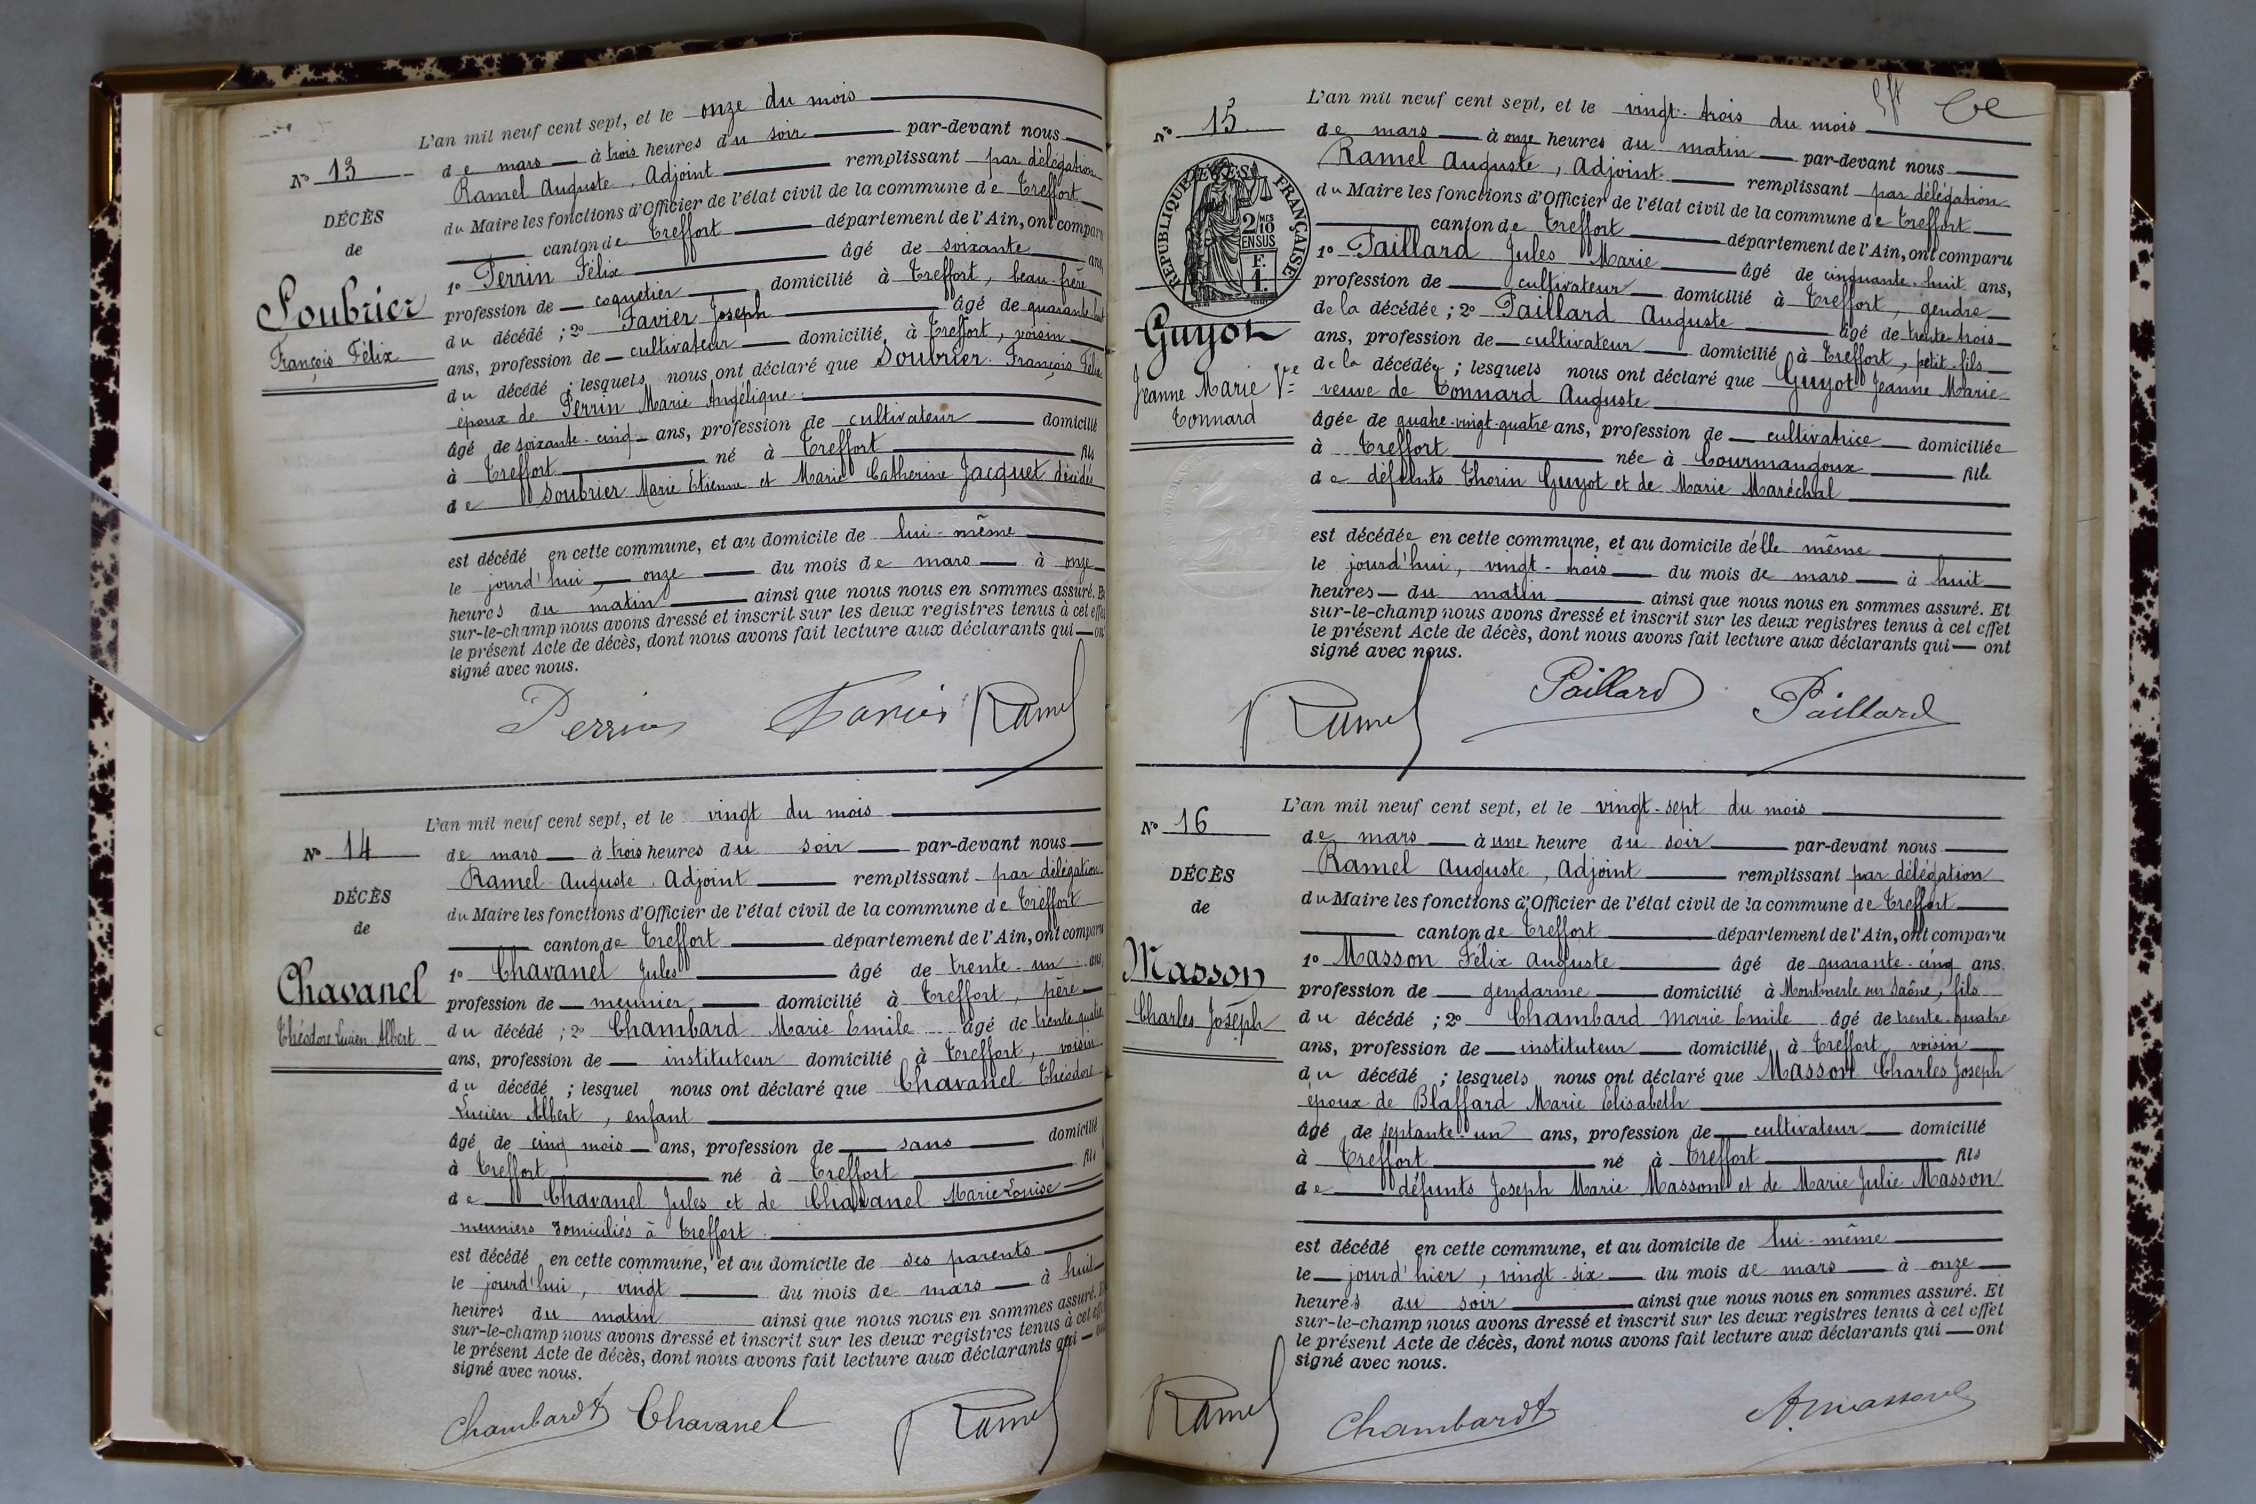 L'an mil neuf cent sept, et le onze du mois
N° 13
de mars à trois heures du soir par-devant nous
Ramel Auguste, Adjoint remplissant par délégation
DÉCÈS
du Maire les fonctions d'Officier de l'état civil de la commune de Treffort
de
canton de Treffort département de l'Ain, ont comparu
1° Perrin Félix âgé de soixante ans,
Soubrier
profession de coquetier domicilié à Treffort, beau-frère
du décédé ; 2° Favier Joseph âgé de quarante huit
François Félix
ans, profession de cultivateur domicilié à Treffort, voisin
du décédé ; lesquels nous ont déclaré que Soubrier François Félix
époux de Perrin Marie Angélique
âgé de soixante-cinq ans, profession de cultivateur domicilié
à Treffort né à Treffort fils
de Soubrier Marie Etienne et Marie Catherine Jacquet décédés
est décédé en cette commune, et au domicile de lui-même
le jourd'hui, onze du mois de mars à onze
heures du matin ainsi que nous nous en sommes assuré. Et
sur-le-champ nous avons dressé et inscrit sur les deux registres tenus à cet effet
le présent Acte de décès, dont nous avons fait lecture aux déclarants qui ont
signé avec nous.
Perrin Favier Ramel
L'an mil neuf cent sept, et le vingt du mois
N° 14
de mars à trois heures du soir par-devant nous
Ramel Auguste, Adjoint remplissant par délégation
DÉCÈS
du Maire les fonctions d'Officier de l'état civil de la commune de Treffort
de
canton de Treffort département de l'Ain, ont comparu
1° Chavanel Jules âgé de trente-un ans,
Chavanel
profession de meunier domicilié à Treffort, père
Théodore Lucien Albert
du décédé ; 2° Chambard Marie Emile âgé de trente quatre
ans, profession de instituteur domicilié à Treffort, voisin
du décédé ; lesquel nous ont déclaré que Chavanel Théodore
Lucien Albert, enfant
âgé de cinq mois ans, profession de sans domicilié
à Treffort né à Treffort fils
de Chavanel Jules et de Chavanel Marie Louise
meuniers domiciliés à Treffort
est décédé en cette commune, et au domicile de ses parents
le jourd'hui, vingt du mois de mars à huit
heures du matin ainsi que nous nous en sommes assuré. Et
sur-le-champ nous avons dressé et inscrit sur les deux registres tenus à cet effet
le présent Acte de décès, dont nous avons fait lecture aux déclarants qui ont
signé avec nous.
Chambard Chavanel Ramel
L'an mil neuf cent sept, et le vingt-trois du mois
N° 15
de mars à onze heures du matin par-devant nous
Ramel Auguste, Adjoint remplissant par délégation
du Maire les fonctions d'Officier de l'état civil de la commune de Treffort
RÉPUBLIQUE FRANÇAISE
2/10 MES EN SUS
F. 1.
canton de Treffort département de l'Ain, ont comparu
1° Paillard Jules Marie âgé de cinquante-huit ans,
profession de cultivateur domicilié à Treffort, gendre
de la décédée ; 2° Paillard Auguste âgé de trente-trois
Guyot
ans, profession de cultivateur domicilié à Treffort, petit-fils
de la décédée ; lesquels nous ont déclaré que Guyot Jeanne Marie
Jeanne Marie Vve
veuve de Tonnard Auguste
Tonnard
âgée de quatre-vingt-quatre ans, profession de cultivatrice domiciliée
à Treffort née à Courmangoux fille
de défunts Thorin Guyot et de Marie Maréchal
est décédée en cette commune, et au domicile d'elle même
le jourd'hui, vingt-trois du mois de mars à huit
heures du matin ainsi que nous nous en sommes assuré. Et
sur-le-champ nous avons dressé et inscrit sur les deux registres tenus à cet effet
le présent Acte de décès, dont nous avons fait lecture aux déclarants qui ont
signé avec nous.
Ramel Paillard Paillard
L'an mil neuf cent sept, et le vingt-sept du mois
N° 16
de mars à une heure du soir par-devant nous
Ramel Auguste, Adjoint remplissant par délégation
DÉCÈS
du Maire les fonctions d'Officier de l'état civil de la commune de Treffort
de
canton de Treffort département de l'Ain, ont comparu
1° Masson Félix Auguste âgé de quarante-cinq ans.
Masson
profession de gendarme domicilié à Montmerle sur Saône, fils
Charles Joseph
du décédé ; 2° Chambard Marie Emile âgé de trente-quatre
ans, profession de instituteur domicilié à Treffort, voisin
du décédé ; lesquels nous ont déclaré que Masson Charles Joseph
époux de Blaffard Marie Elisabeth
âgé de septante-un ans, profession de cultivateur domicilié
à Treffort né à Treffort fils
de défunts Joseph Marie Masson et de Marie Julie Masson
est décédé en cette commune, et au domicile de lui-même
le jourd'hier, vingt-six du mois de mars à onze
heures du soir ainsi que nous nous en sommes assuré. Et
sur-le-champ nous avons dressé et inscrit sur les deux registres tenus à cet effet
le présent Acte de décès, dont nous avons fait lecture aux déclarants qui ont
signé avec nous.
Ramel Chambard A. Masson